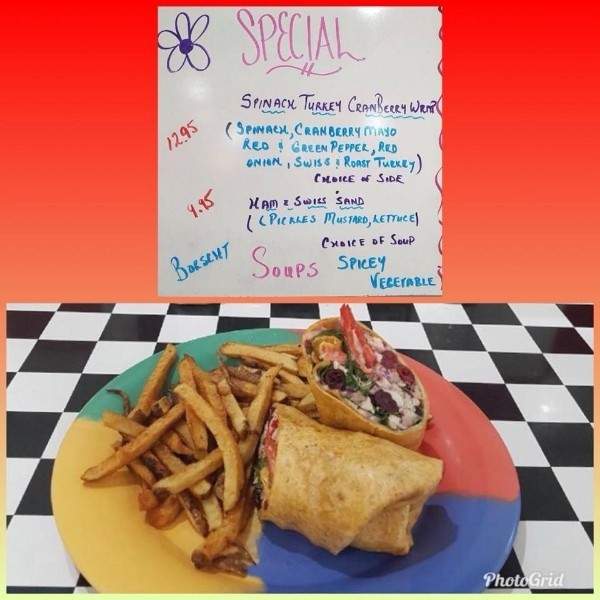 SPECIAL
SPINACH TURKEY CRANBERRY WRAP
12.95
(SPINACH, CRANBERRY MAYO
RED & GREEN PEPPER, RED
ONION, SWISS & ROAST TURKEY)
CHOICE OF SIDE
9.95
HAM & SWISS SAND
(PICKLES MUSTARD, LETTUCE)
CHOICE OF SOUP
SOUPS
SPICEY
VEGETABLE
PhotoGrid